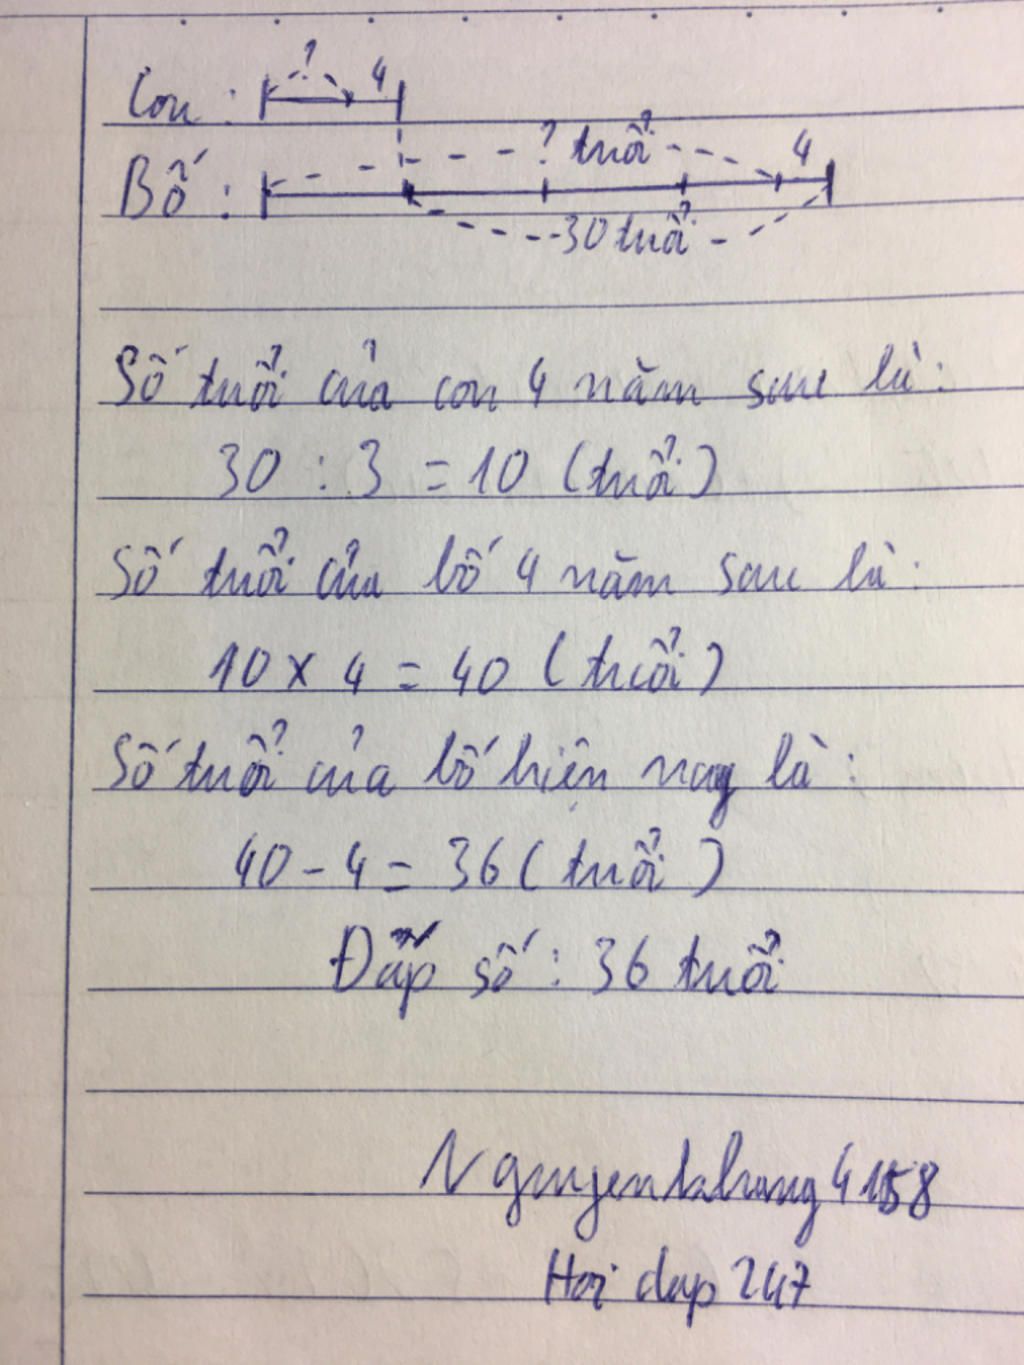 Con : ? 4
Bố : ? tuổi 4
30 tuổi
Số tuổi của con 4 năm sau là :
30 : 3 = 10 (tuổi)
Số tuổi của bố 4 năm sau là :
10 x 4 = 40 (tuổi)
Số tuổi của bố hiện nay là :
40 - 4 = 36 ( tuổi )
Đáp số : 36 tuổi
Nguyenkhang4158
Hoi dap 247